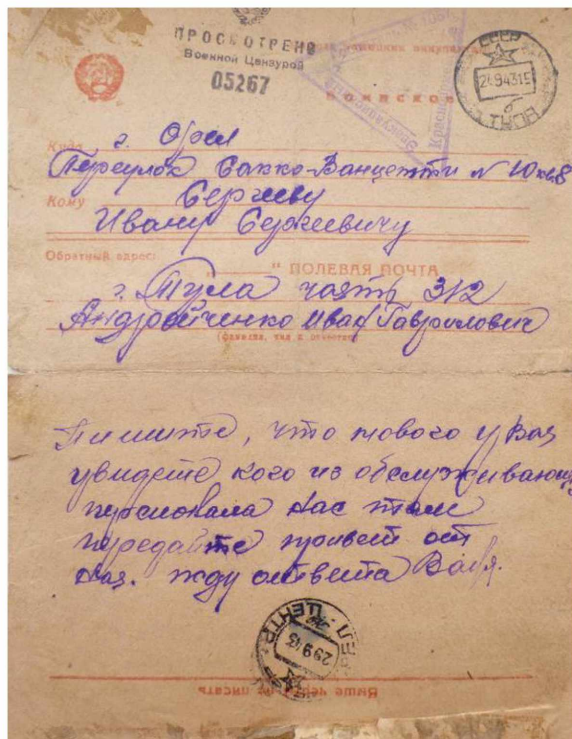 ПРОСМОТРЕНО
Военной Цензурой
05267
СССР
24.9.43 15
ТУЛА
Куда г. Орел
Переулок Сакко-Ванцетти № 10 кв 8
Кому Сергееву
Ивану Сергеевичу
Обратный адрес:
" " ПОЛЕВАЯ ПОЧТА
г. Тула часть 312
Андройченко Иван Гаврилович
(фамилия, имя и отчество)
Пишите, что нового у Вас
увидете кого из
персонала нас там
передайте привет от
нас. жду ответа Ваня.
29 9 43
ЦЕНТР
Выше черты не писать